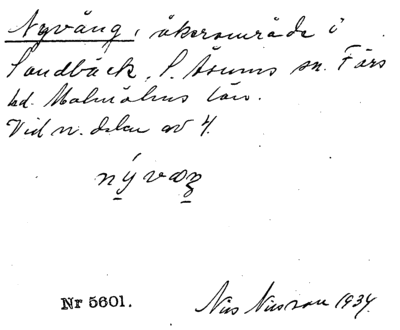 Nyväng, åkerområde i
Sandbäck, S. Åsums sn. Färs
hd. Malmöhus län.
Vid n. delen av 4.
nývæŋ
Nr 5601.
Nils Nilsson 1934.